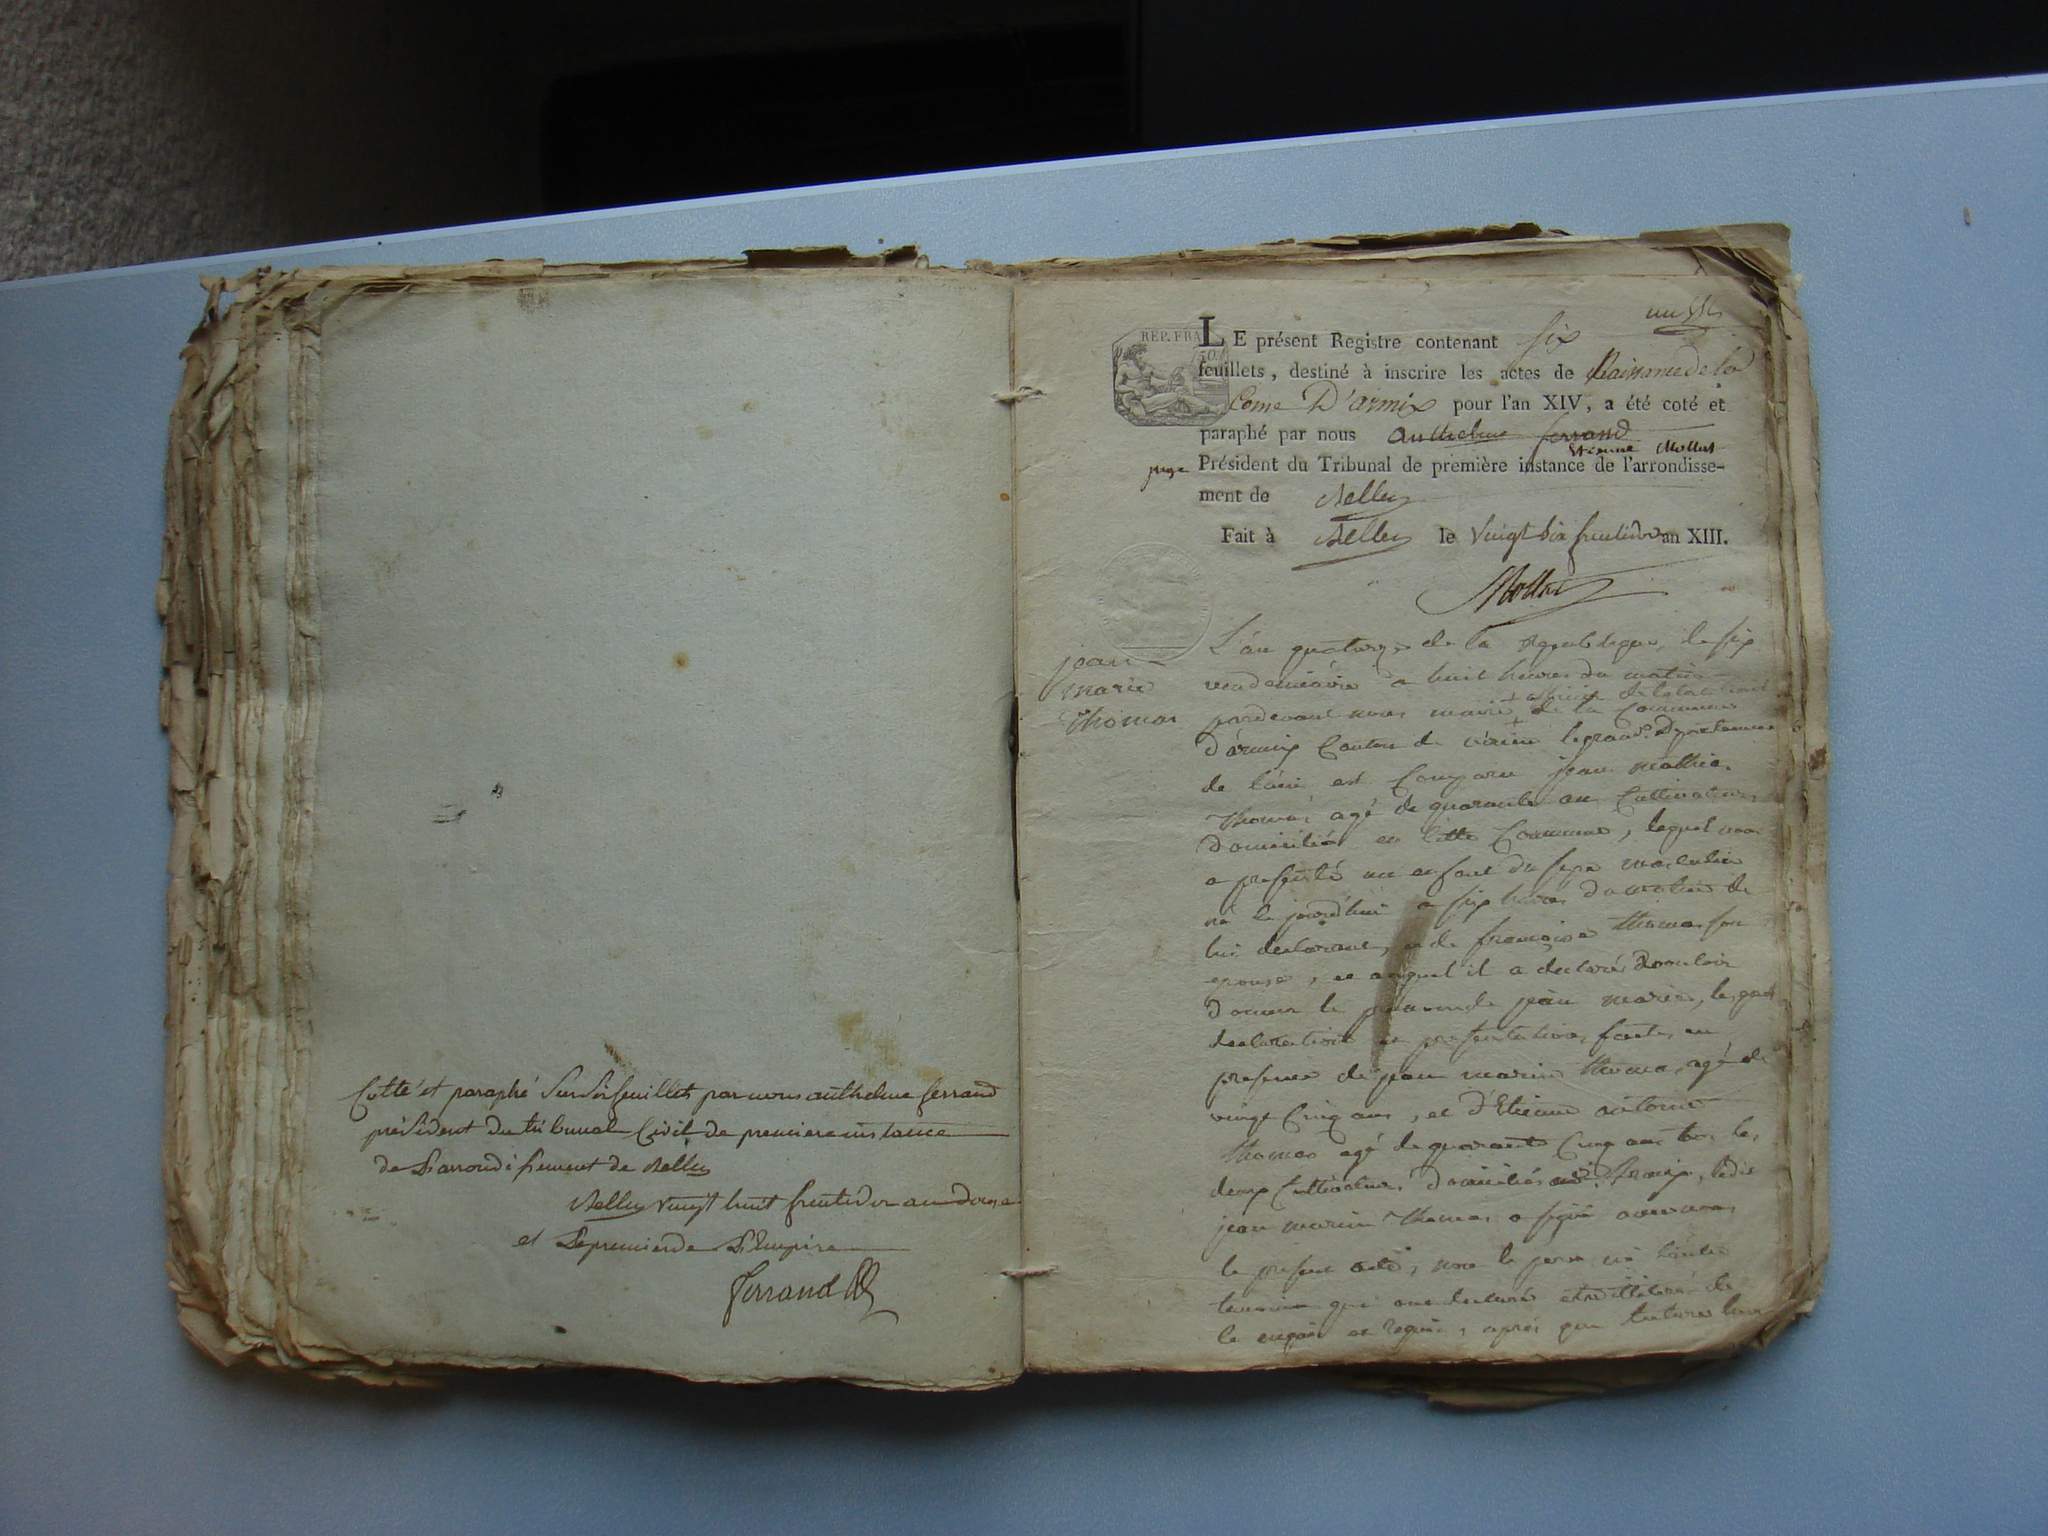 Cotté et paraphé Sur Six feuillets par nous anthelme ferrand
président du tribunal Civil de premiere instance
de L'arrondissement de Belley
Belley vingt huit fructidor an douze
et Le premier de L'Empire
ferrand
REP. FRA
LE présent Registre contenant Six
feuillets, destiné à inscrire les actes de Naissance de la
Come D'armix pour l'an XIV, a été coté et
paraphé par nous anthelme ferrand
Etienne Mollet
juge Président du Tribunal de première instance de l'arrondisse-
ment de Belley
Fait à Belley le vingt Six fructidor an XIII.
Mollet
jean
marie
thomas
L'an quatorze de la republique, le six
vendemiaire a huit heures du matin
pardevant nous maire de la Commune
d'armix Canton de virieu le grand Departement
de l'ain est Comparu jean mathieu
thomas agé de quarante ans Cultivateur
domicilié en cette Commune, lequel nous
a presenté un enfant du sexe masculin
né le jourd'hui a six heures du matin de
lui declarant, et de françoise thomas son
epouse, et auquel il a declaré vouloir
donner le prenom de jean marie, les quels
declaration et presentation faites en
presence de jean marie thomas, agé de
vingt Cinq ans, et d'Etienne antoine
thomas agé de quarante Cinq ans tous les
deux Cultivateurs domiciliés armix, ledit
jean marie thomas a signé avec nous
le present acte, non le pere ni l'autre
temoin qui ont declaré etre illitérés de
ce enquis et requis, après que lecture leur